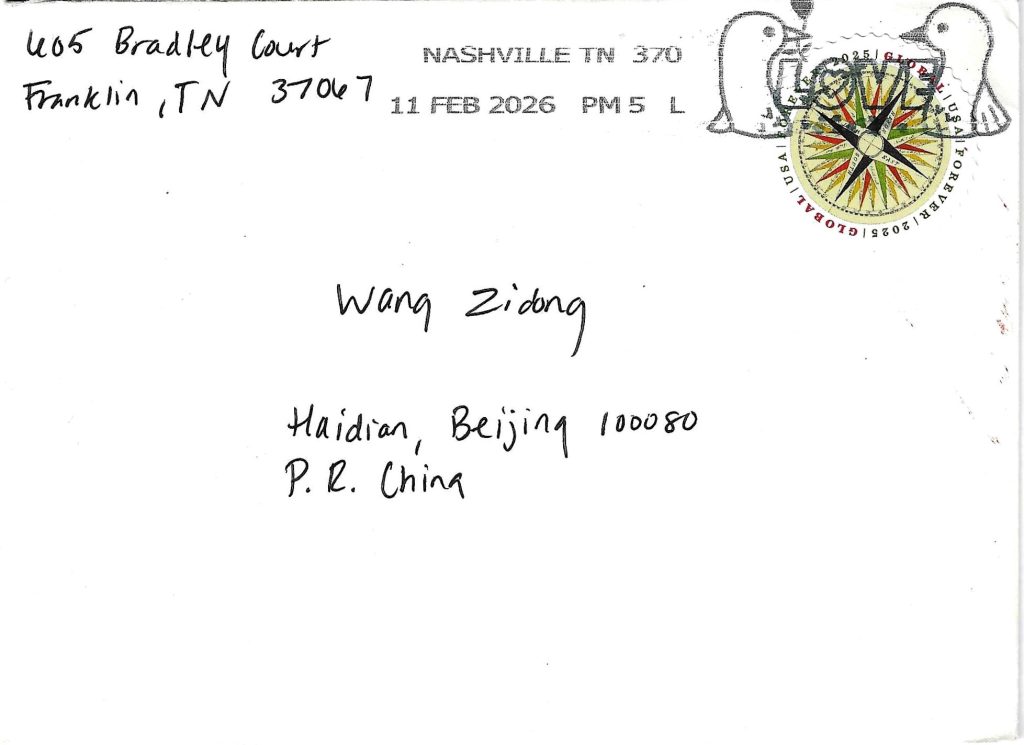 605 Bradley Court
Franklin, TN 37067
NASHVILLE TN 370
11 FEB 2026 PM 5 L
LOVE
GLOBAL | USA | FOREVER | 2025 | GLOBAL | USA | FOREVER | 2025 |
EAST
Wang Zidong
Haidian, Beijing 100080
P. R. China